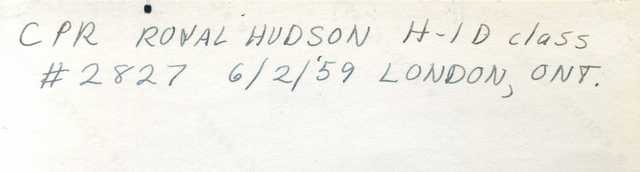 CPR ROYAL HUDSON H-1D class
#2827 6/2/'59 LONDON, ONT.